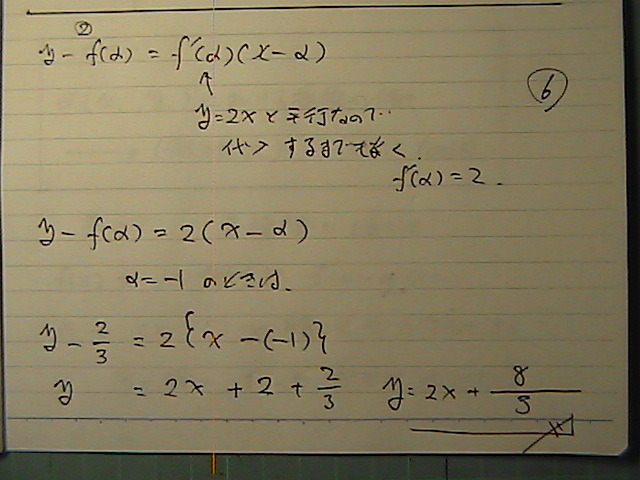 ②
y - f(α) = f'(α)(x - α)
⑥
↑
y=2xと平行なので…
代入するまでもなく.
f'(α) = 2.
y - f(α) = 2(x - α)
α = -1 のときは.
y - 2/3 = 2{x - (-1)}
y = 2x + 2 + 2/3 y = 2x + 8/3